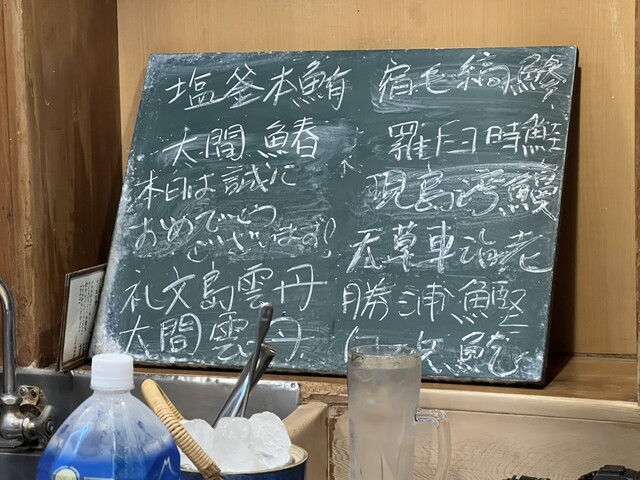 塩釜本鮪
大間 鰆
本日は誠に
おめでとう
ございます!!
礼文島雲丹
大間雲丹
宿毛縞鯵
羅臼時鮭
島湾鰻
天草車海老
勝浦鰹